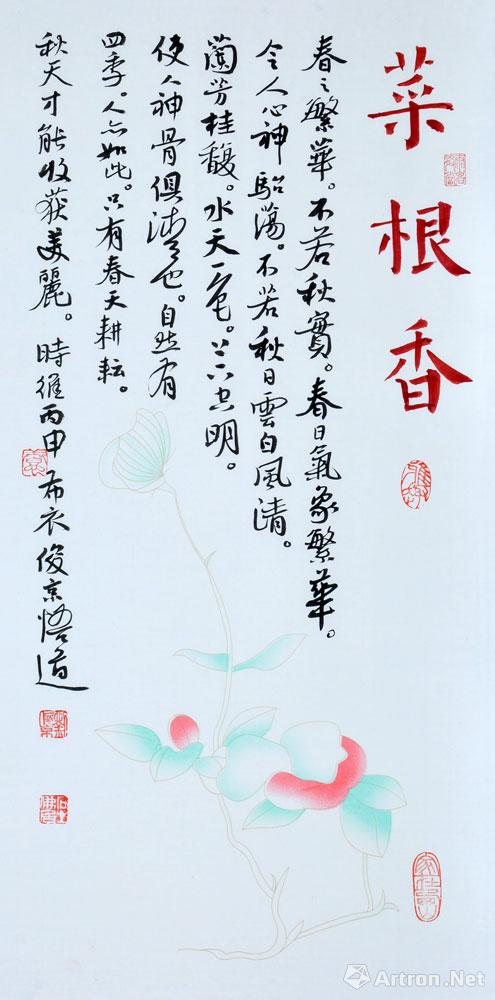 菜根香
春之繁華。不若秋實。春日氣象繁華。
令人心神駘蕩。不若秋日雲白風清。
蘭芳桂馥。水天一色。上下空明。
使人神骨俱清也。自然有
四季。人亦如此。只有春天耕耘。
秋天才能收获美麗。時維丙申布衣俊京悟道
Artron.Net